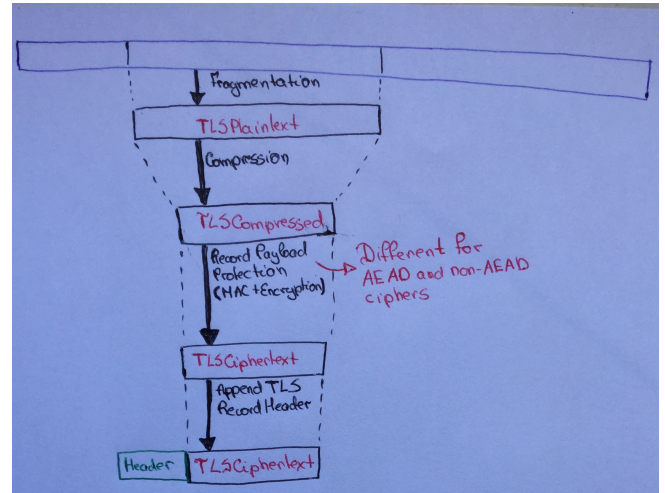 Fragmentation
TLSPlaintext
Compression
TLSCompressed
Record Payload
Protection
(MAC+Encryption)
Different for
AEAD and non-AEAD
ciphers
TLSCiphertext
Append TLS
Record Header
Header
TLSCiphertext